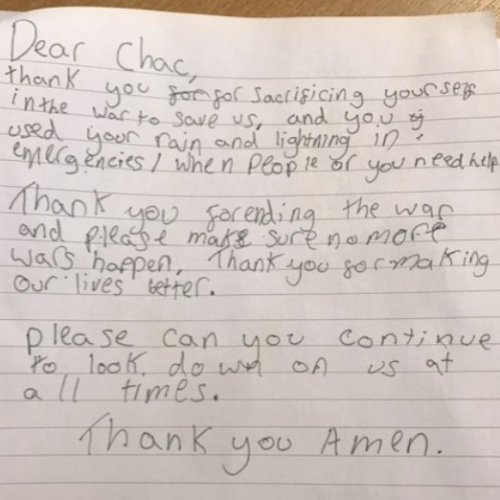 Dear Chac,
thank you for for sacrificing yourself
in the war to save us, and you of
used your rain and lightning in
emergencies/when people or you need help
Thank you for ending the war
and please make sure no more
wars happen. Thank you for making
our lives better.
please can you continue
to look down on us at
all times.
Thank you Amen.